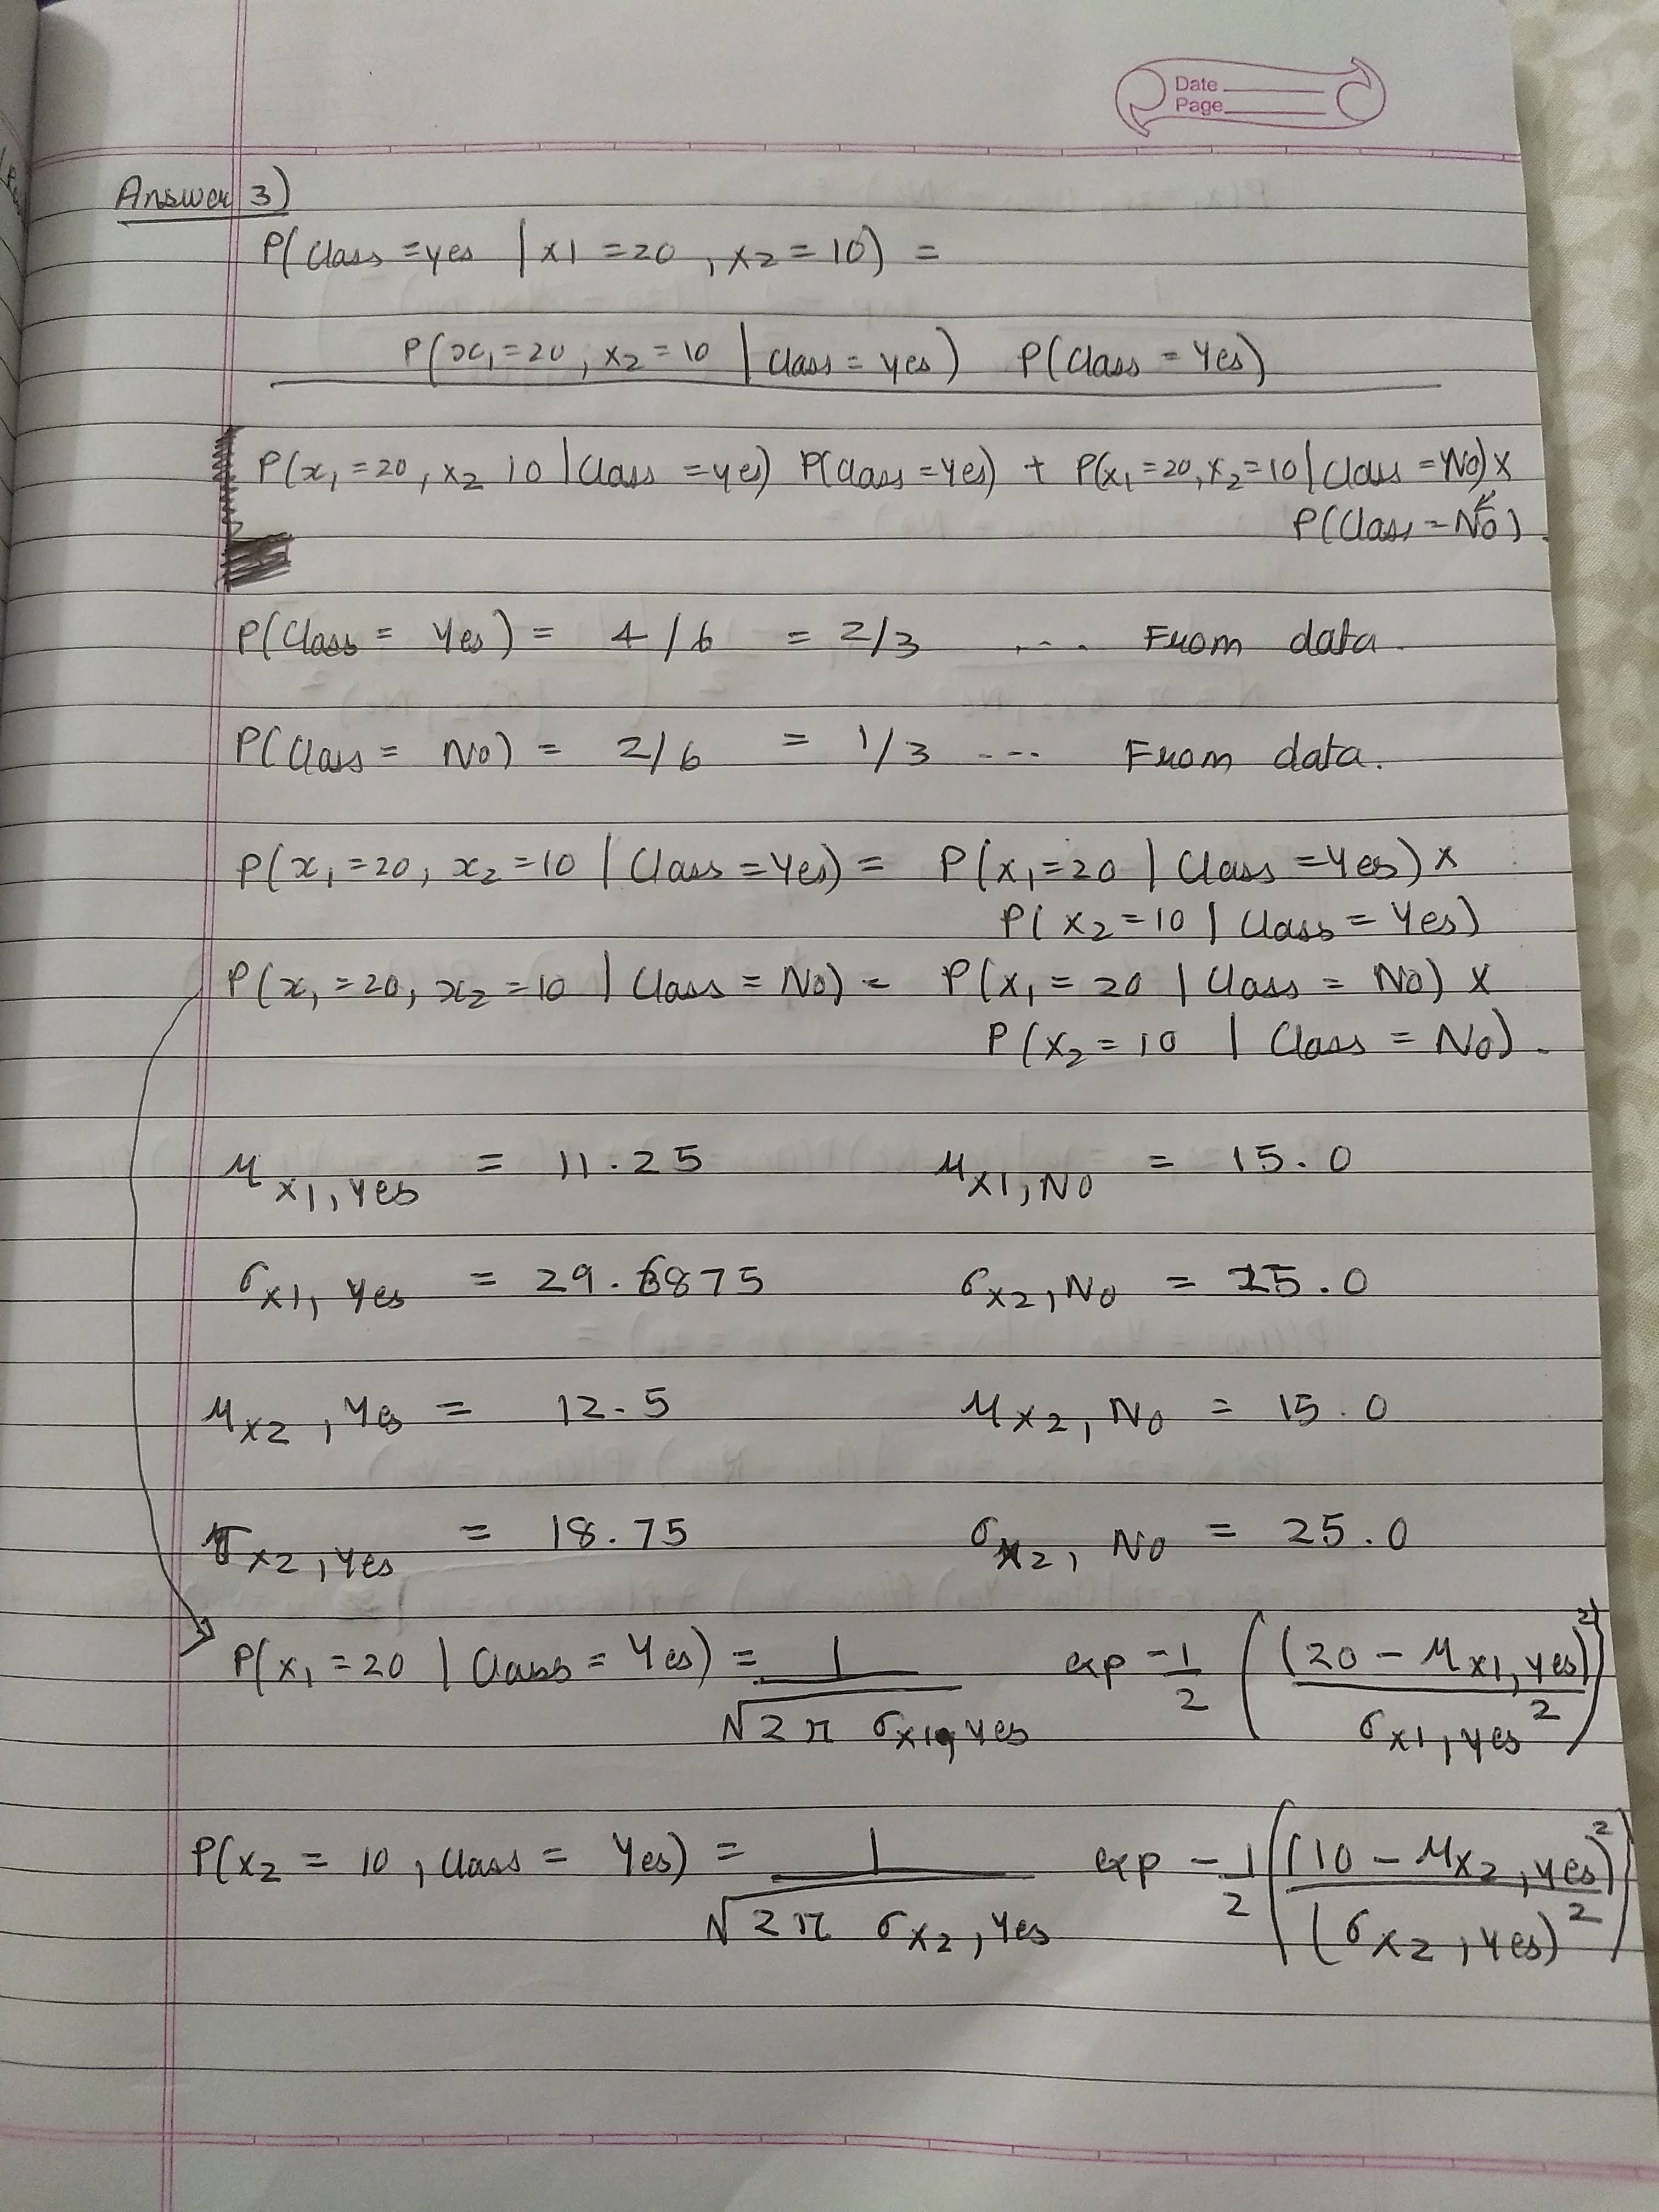 Date
Page
Answer 3)
P(Class = yes | x1 = 20 , x2 = 10) =
P(x₁ = 20 , x₂ = 10 | Class = yes) P(Class = Yes)
P(x₁ = 20 , x₂ 10 | Class = yes) P(Class = Yes) + P(x₁ = 20, x₂ = 10 | Class = No) x
P(Class = No).
P(Class = Yes) = 4/6 = 2/3 .... From data.
P(Class = No) = 2/6 = 1/3 --- From data.
P(x₁ = 20, x₂ = 10 | Class = Yes) = P(x₁ = 20 | Class = Yes) x
P(x₂ = 10 | Class = Yes)
P(x₁ = 20, x₂ = 10 | Class = No) = P(x₁ = 20 | Class = No) x
P(x₂ = 10 | Class = No).
μ x1, yes = 11.25 μ x1, No = 15.0
σ x1, Yes = 29.6875 σ x2, No = 25.0
μ x2, Yes = 12.5 μ x2, No = 15.0
σ x2, Yes = 18.75 σ x2, No = 25.0
P(x₁ = 20 | Class = Yes) = 1 / √2π σ x1, yes exp -1/2 ((20 - μ x1, yes)² / σ x1, yes ²)
P(x₂ = 10, Class = Yes) = 1 / √2π σ x2, Yes exp -1/2 ((10 - μ x2, yes)² / (σ x2, yes)²)